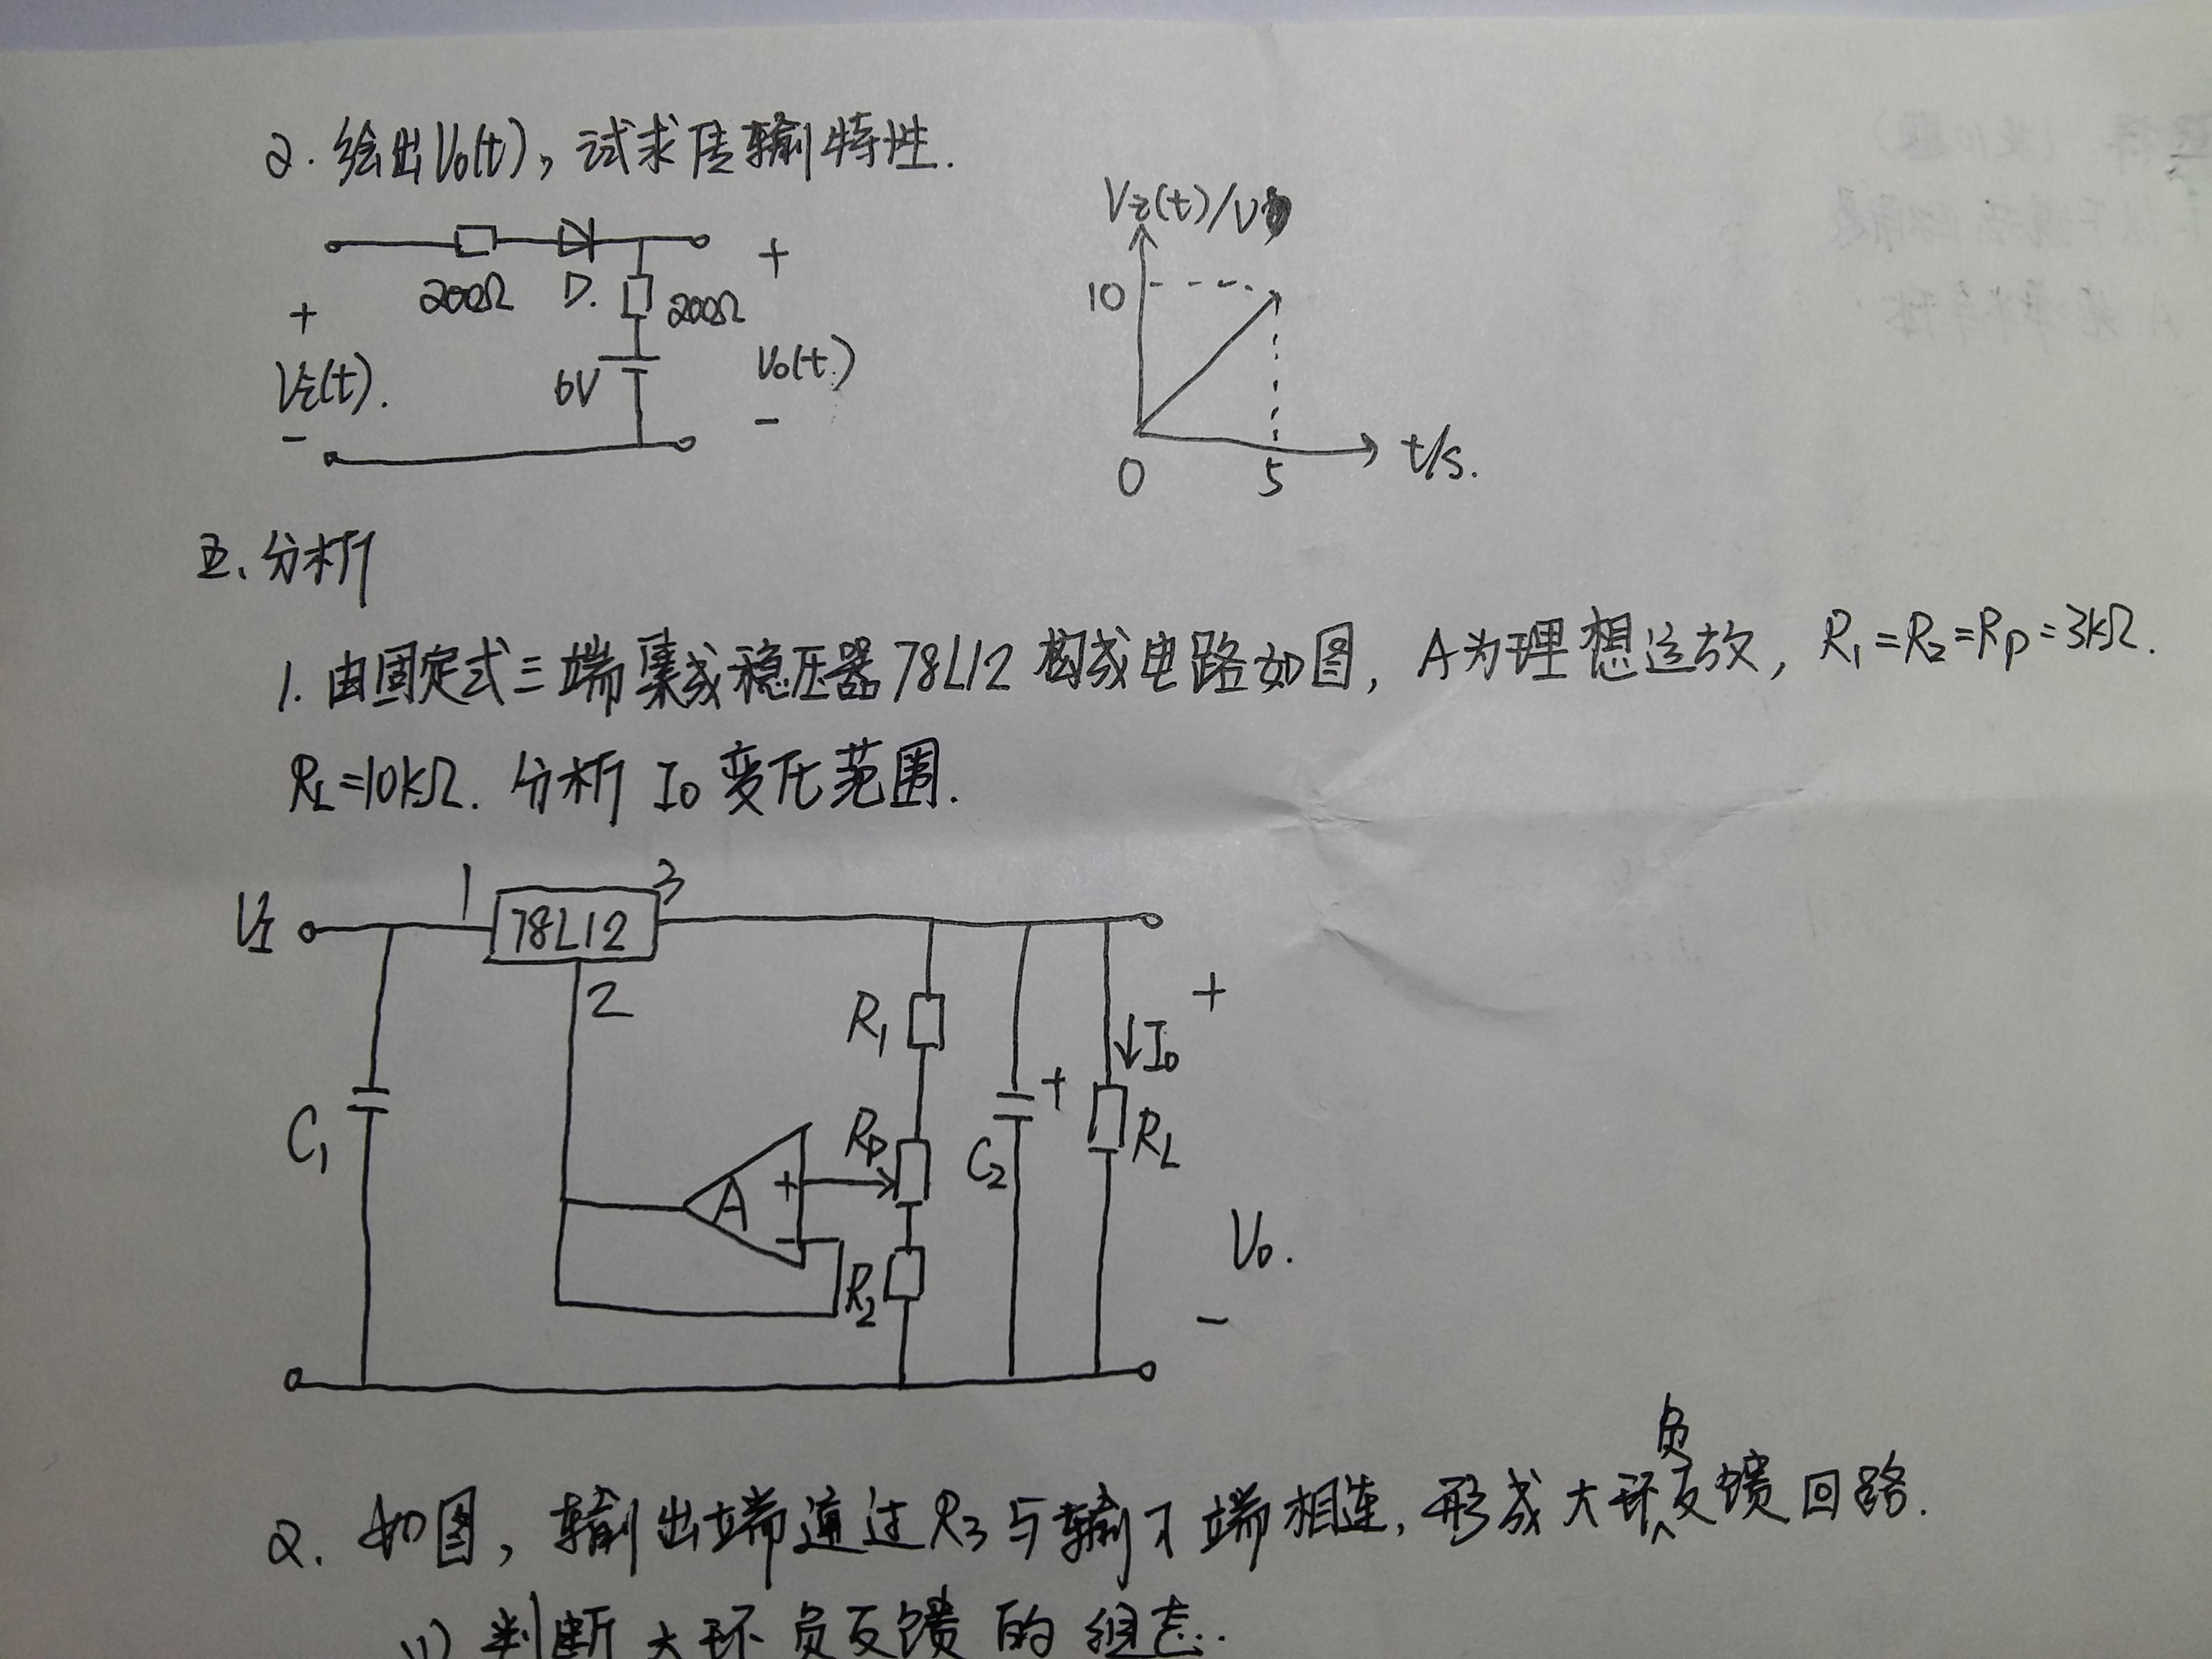 2. 绘出V₀(t), 试求传输特性.
Vi(t)/V
10
0
5
t/s.
200Ω
D.
200Ω
6V
+
Vi(t).
-
+
V₀(t)
-
五、分析
1. 由固定式三端集成稳压器78L12构成电路如图, A为理想运放, R₁=R₂=Rp=3kΩ.
RL=10kΩ. 分析 I₀ 变化范围.
VI
1
78L12
3
2
C₁
A
+
-
R₁
Rp
R₂
C₂
+
↓I₀
RL
+
V₀.
-
2. 如图, 输出端通过R₃与输入端相连, 形成大环负反馈回路.
(1) 判断大环负反馈的组态.